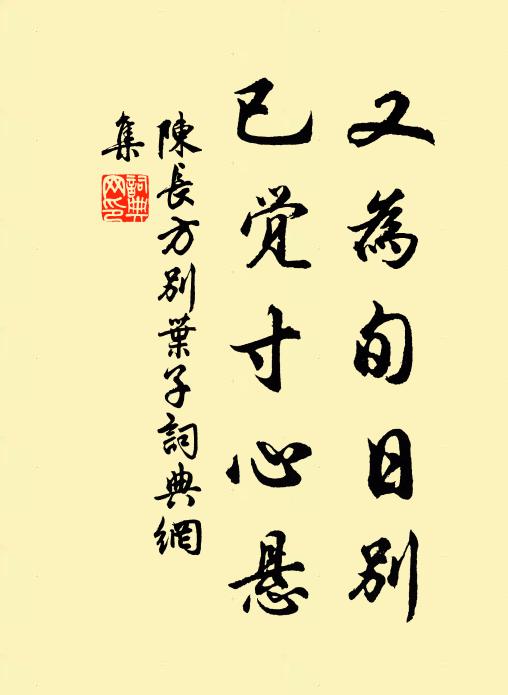 又為旬日別
已覚寸心悬
陳長方別葉子詞典網
集
詞典網印